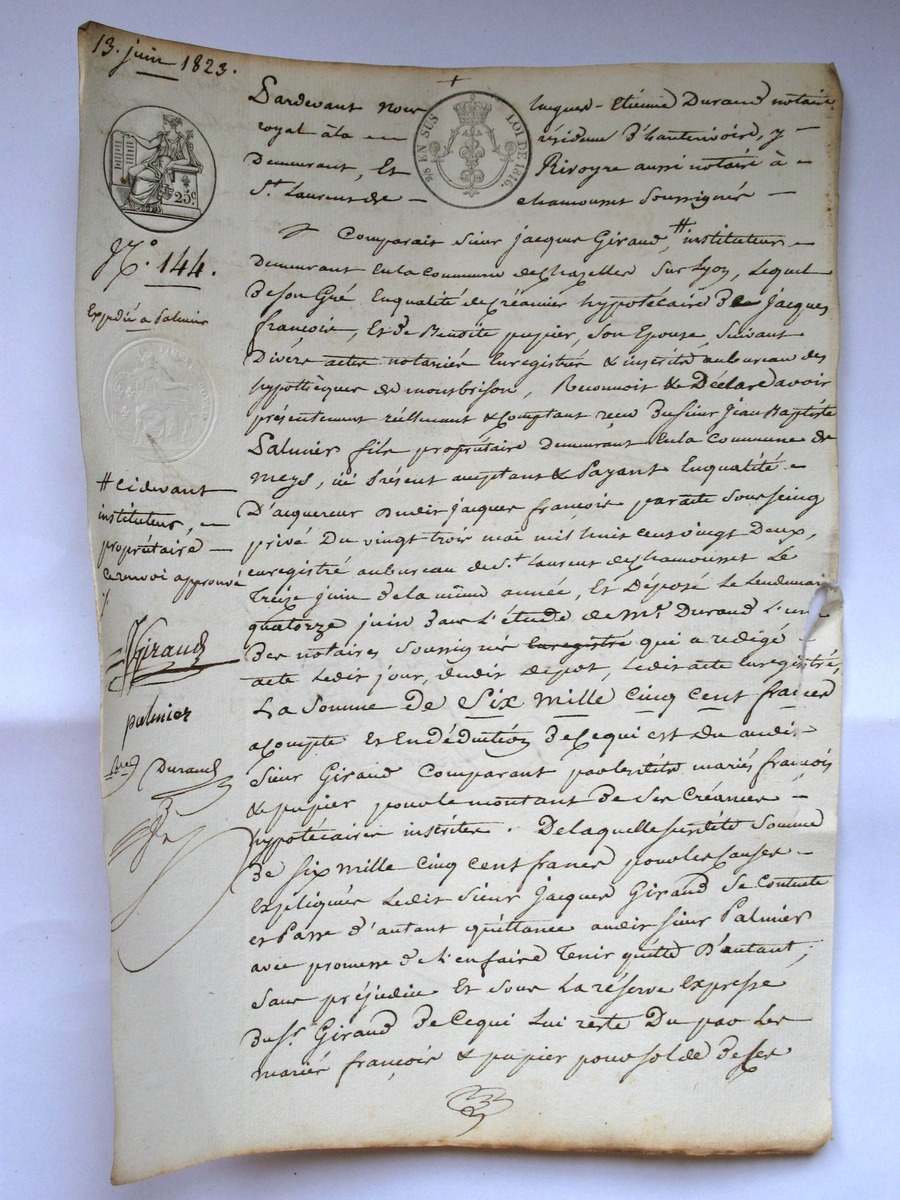 13. juin 1823.
Pardevant Nous Jacques-Etienne Durand notaire
royal à la résidence D'hauterivoire, y
Demeurant, Et Rivoyre aussi notaire à
St. Laurent de chamousset Soussignés
Comparait Sieur Jacques Giraud, # instituteur
Demeurant En la Commune de Chazelles Sur Lyon, Lequel
De Son Gré En qualité de Créancier hypotécaire De Jacques
françois, Et De Benoite pupier, Son Epouse, Suivant
Divers actes notariés Enregistrés & inscrits au bureau des
hypothèques de montbrison, Reconnoit & Déclare avoir
présentement réellement & Comptant reçu Du Sieur Jean Baptiste
Palmier fils propriétaire Demeurant En la Commune de
Meys, ici Présent acceptant & Payant En qualité
D'acquereur Dudit Jacques francois par acte Sous Seing
privé Du vingt trois mai mil huit cent vingt Deux,
enregistré au bureau de St. Laurent de Chamousset Le
Treize juin de la même année, Et Déposé Le Lendemain
quatorze juin Dans L'étude de Me. Durand L'un
Des notaires Soussignés Enregistré qui a redigé
acte Ledit jour, dudit Dépot, Ledit acte Enregistré,
La Somme De Six mille Cinq Cent francs
a Compte Et En Déduction De Ce qui est Du audit
Sieur Giraud Comparant par Les dits mariés françois
& pupier pour le montant De Ses Créances
hypotécaires inscrites. De laquelle Susdite Somme
De Six mille Cinq Cent francs pour les Causes
Expliquées Ledit Sieur Jacques Giraud Se Contente
et Passe D'autant Quittance audit Sieur Palmier
avec promesse De L'en faire Tenir quitte D'autant;
Sans préjudice Et Sous La réserve Expresse
Du Sr. Giraud De Ce qui Lui reste Du par Les
mariés françois & pupier pour Solde De Ses
25c
45 EN SUS
LOI DE 1816.
No. 144.
Expédié à Palmier
# Cidevant
instituteur,
propriétaire
Ce renvoi approuvé
JGiraud
palmier
Durand